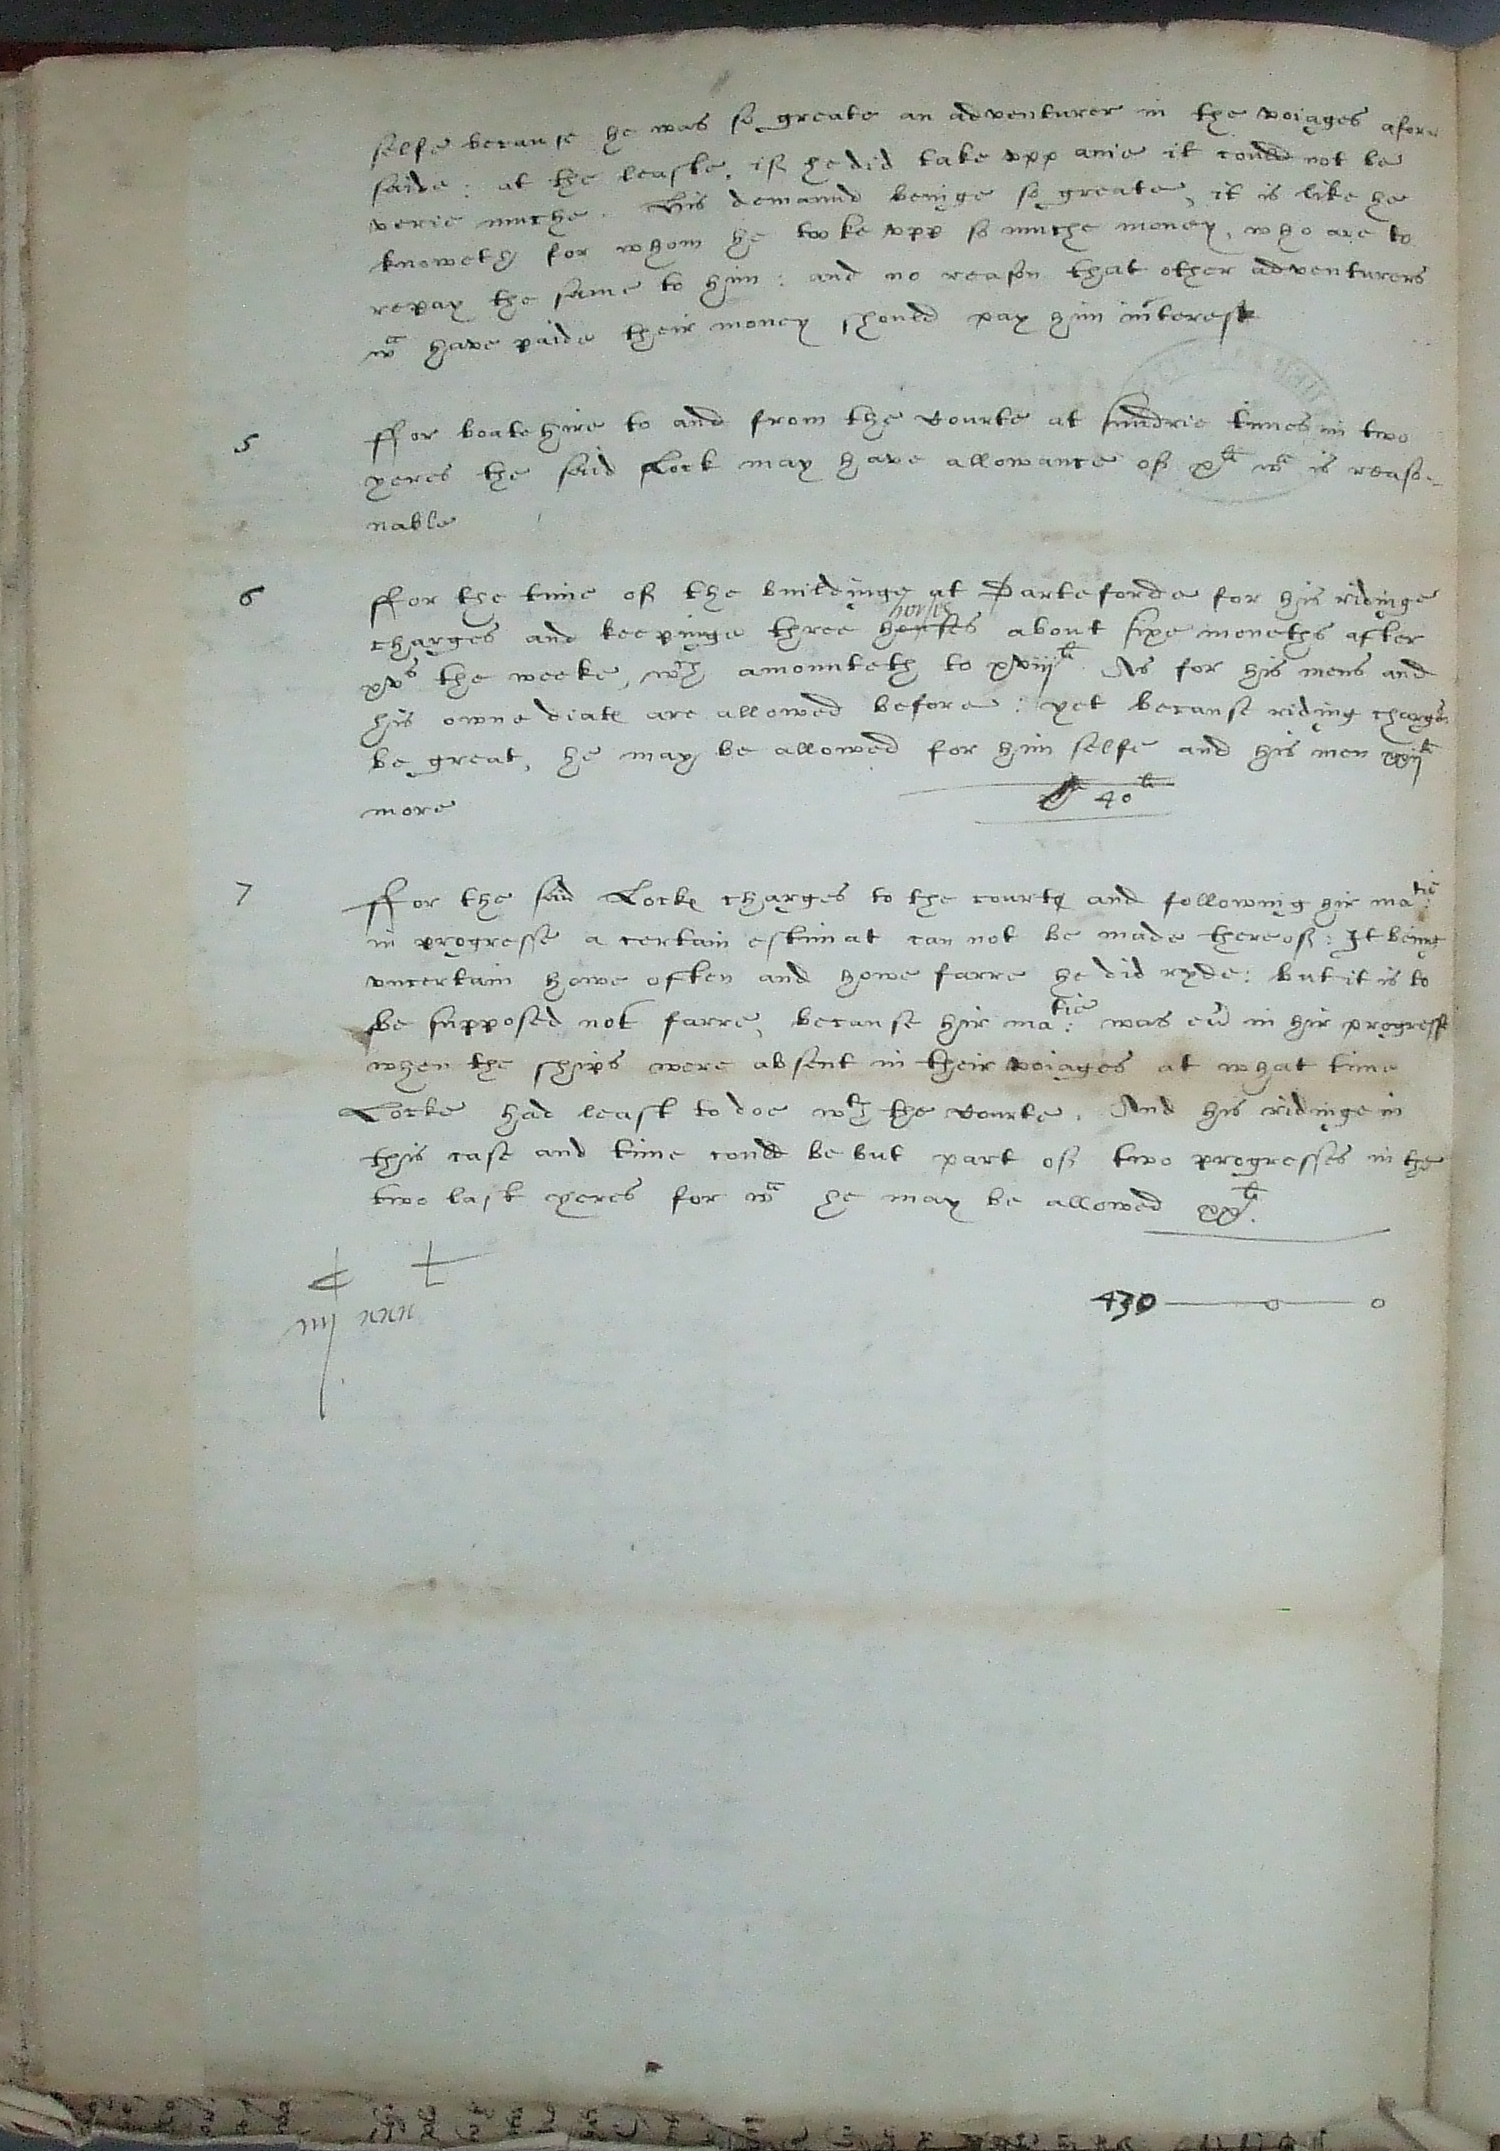 selfe because he was so greate an adventurer in the voiages afore
saide: at the leaste, if he did take vpp anie it could not be
verie muche. This demaund beinge so greate, it is like he
knoweth for whom he tooke vpp so muche money, who are to
repay the same to him: and no reason that other adventurers
wch have paide their money should pay him interest
5 ffor boate hire to and from the Courte at sundrie times in two
yeres the said Lock may have allowance of xli wch is reaso-
nable
6 ffor the time of the buildinge at Darteforde for his ridinge
horses
charges and keepinge three horses about sixe moneths after
xvs the weeke, wch amounteth to xviijli. As for his mens and
his owne diate are allowed before: yet because riding charges
be great, he may be allowed for him selfe and his men xxijli
more 40li
7 ffor the said Locke charges to the courte and following hir matie:
in progresse a certain estimat can not be made thereof: It being
vncertain howe often and howe farre he did ryde: but it is to
be supposed not farre, because hir matie: was eũ in hir progresse
when the ships were absent in their voiages at what time
Locke had least to doe wth the Courte. And his ridinge in
this case and time could be but part of two progresses in the
two last yeres for wch he may be allowed xxli.
430 — o — o